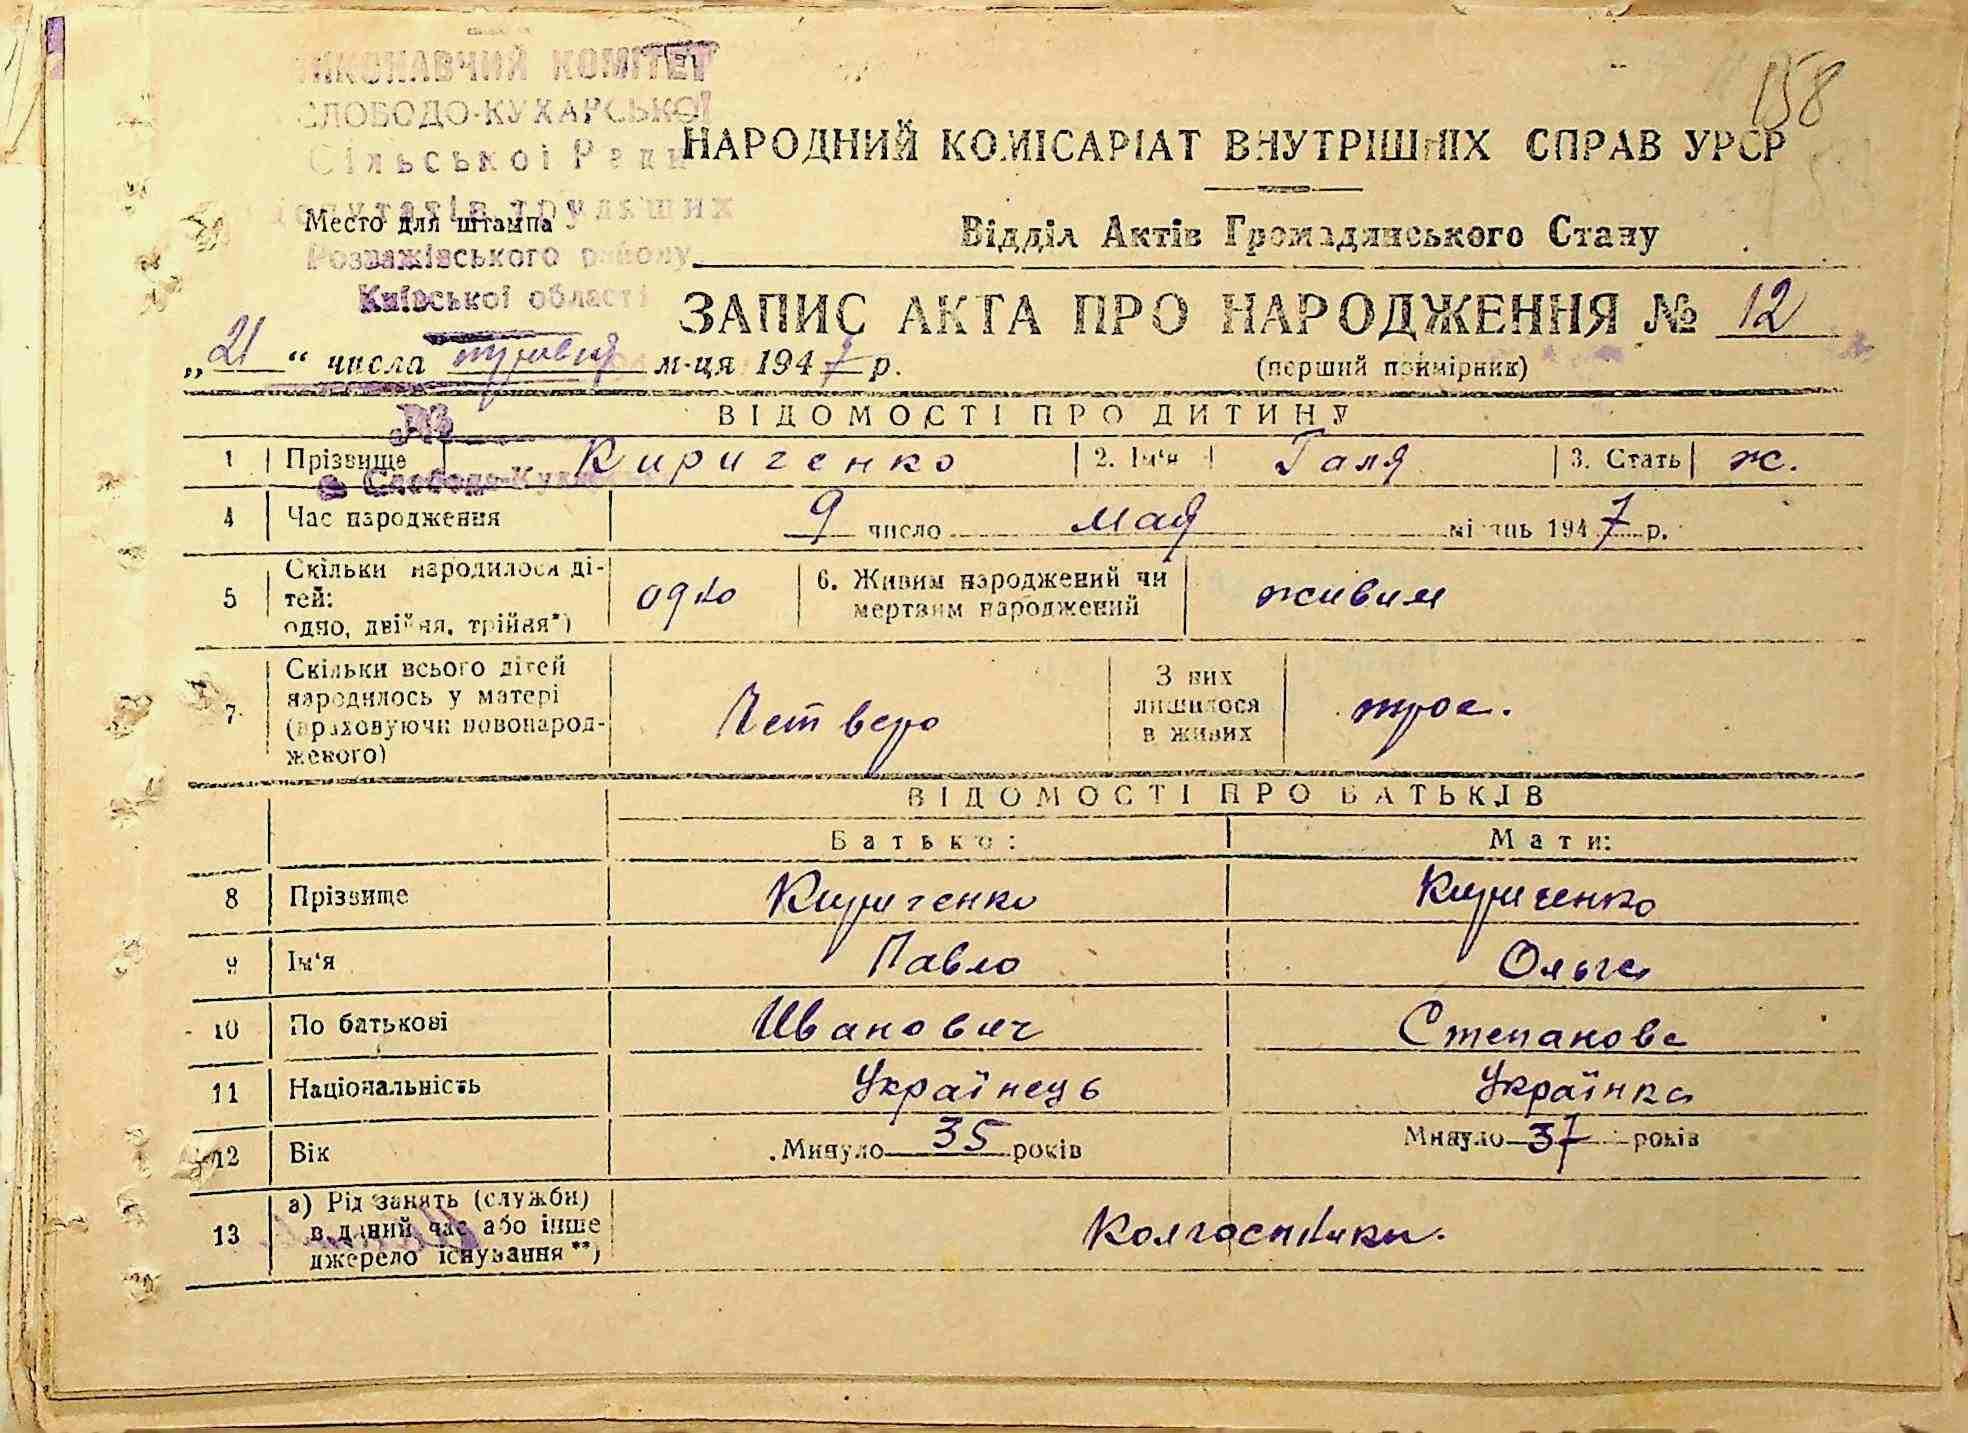 ВИКОНАВЧИЙ КОМІТЕТ
СЛОБОДО-КУХАРСЬКОЇ
Сільської Ради
депутатів трудящих
Розважівського району
Київської області
158
НАРОДНИЙ КОМІСАРІАТ ВНУТРІШНІХ СПРАВ УРСР
Место для штампа
Відділ Актів Громадянського Стану
ЗАПИС АКТА ПРО НАРОДЖЕННЯ № 12
„21“ числа травня м-ця 1947 р.
(перший примірник)
ВІДОМОСТІ ПРО ДИТИНУ
№
1 Прізвище Кириченко 2. Ім'я Галя 3. Стать ж.
с. Слобода-Кухарська
4 Час народження 9 число мая місяць 1947 р.
5 Скільки народилося ді-
тей:
одно, двійня, трійня*)
одно
6. Живим народжений чи
мертвим народжений
живим
7. Скільки всього дітей
народилось у матері
(враховуючи новонарод-
женого)
Четверо
З них
лишилося
в живих
трое.
ВІДОМОСТІ ПРО БАТЬКІВ
Батько: Мати:
8 Прізвище Кириченко Кириченко
9 Ім'я Павло Ольга
10 По батькові Иванович Степанова
11 Національність Українець Українка
12 Вік Минуло 35 років Минуло 37 років
13 а) Рід занять (служби)
в даний час або інше
джерело існування**)
Колгоспники.